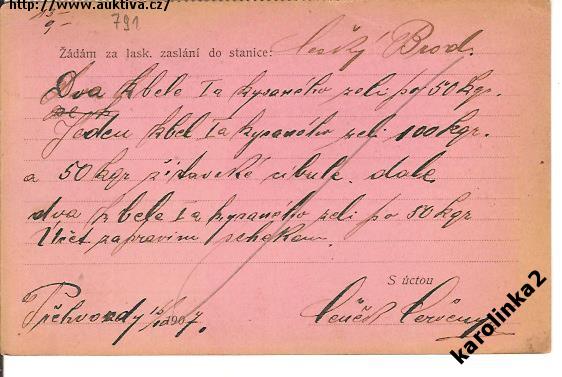 http://www.auktiva.cz/
791
Žádám za lask. zaslání do stanice: Český Brod.
Dva kbele Ia kysaného zelí po 50 kgr.
Jeden kbel Ia kysaného zelí 100 kgr.
a 50 kgr žitavské cibule. dále
dva kbele Ia kysaného zelí po 50 kgr
Účet zapravím
S úctou
1907.
Červený
karolinka2